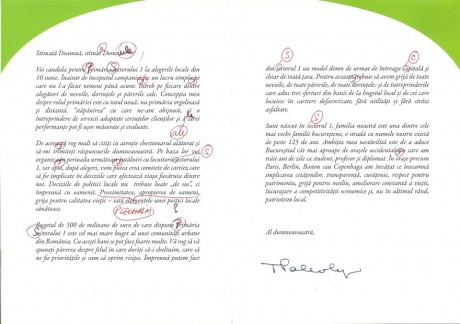 Stimată Doamnă, stimate Domnule
Voi candida pentru Primăria Sectorului 1 la alegerile locale din
10 iunie. Înainte de începutul campaniei fac un lucru simplu pe
care nu l-a făcut nimeni până acum: întreb pe fiecare dintre
alegători de nevoile, dorințele și părerile sale. Concepția mea
despre rolul primăriei este cu totul nouă: nu primăria orgolioasă
și distantă, "stăpânirea" cu care ne-am obișnuit, ci o
întreprindere de servicii adaptate cerințelor clienților și a cărei
performanțe pot fi ușor măsurate și evaluate.
De aceea vă rog mult să citiți cu atenție chestionarul alăturat și
să-mi trimiteți răspunsurile dumneavoastră. Pe baza lor voi
organiza în perioada următoare întâlniri cu locuitorii sectorului
1, iar apoi, după alegeri, vom putea crea comitete de cartier care
să fie implicate în deciziile care afectează viața fiecăruia dintre
noi. Deciziile de politici locale nu trebuie luate „de sus”, ci
împreună cu oamenii. Proximitatea, apropierea de oameni,
grija pentru calitatea vieții – iată elementele unei politici locale
sănătoase.
(PLEONASM)
Bugetul de 300 de milioane de euro de care dispune Primăria
Sectorului 1 este cel mai mare buget al unei comunități urbane
din România. Cu acești bani se pot face foarte multe. Vă rog să vă
spuneți părerea despre felul în care doriți să-i cheltuim, care să
ne fie prioritățile și cum să oprim risipa. Împreună putem face
din sectorul 1 un model demn de urmat de întreaga capitală și
chiar de toată țara. Pentru aceasta trebuie să avem grijă de toate
nevoile, de toate părerile, de toate dorințele și de întreprinderile
care aduc trei sferturi din banii de la bugetul local și de cei care
locuiesc în cartiere defavorizate, fără utilități și fără străzi
asfaltate.
Sunt născut în sectorul 1, familia noastră este una dintre cele
mai vechi familii bucureștene, o stradă cu numele nostru existând
de peste 125 de ani. Ambiția mea nestrăvăilită este de a aduce
Bucureștiul cât mai aproape de orașele occidentale pe care am
trăit ani de zile ca student, profesor și diplomat. În orașe precum
Paris, Berlin, Boston sau Copenhaga am învățat ce înseamnă
implicarea cetățenilor, transparență, curățenie, respect pentru
patrimoniu, grijă pentru mediu, ameliorare constantă a vieții,
încurajare a competitivității economice și, nu în ultimul rând,
patriotism local.
Al dumneavoastră,